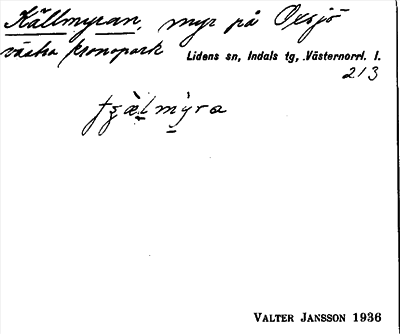 Källmyran, myr på Oxsjö
västra kronopark Lidens sn, Indals tg, Västernorrl. l.
213
VALTER JANSSON 1936